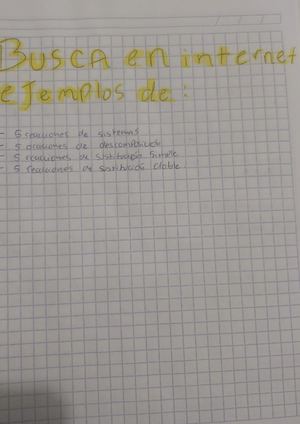 BUSCA en internet
ejemplos de:
- 5 reacciones de sistesis
- 5 reaciones de
- 5 reacciones de sustitución Simple
- 5 reacciones de sustitución doble